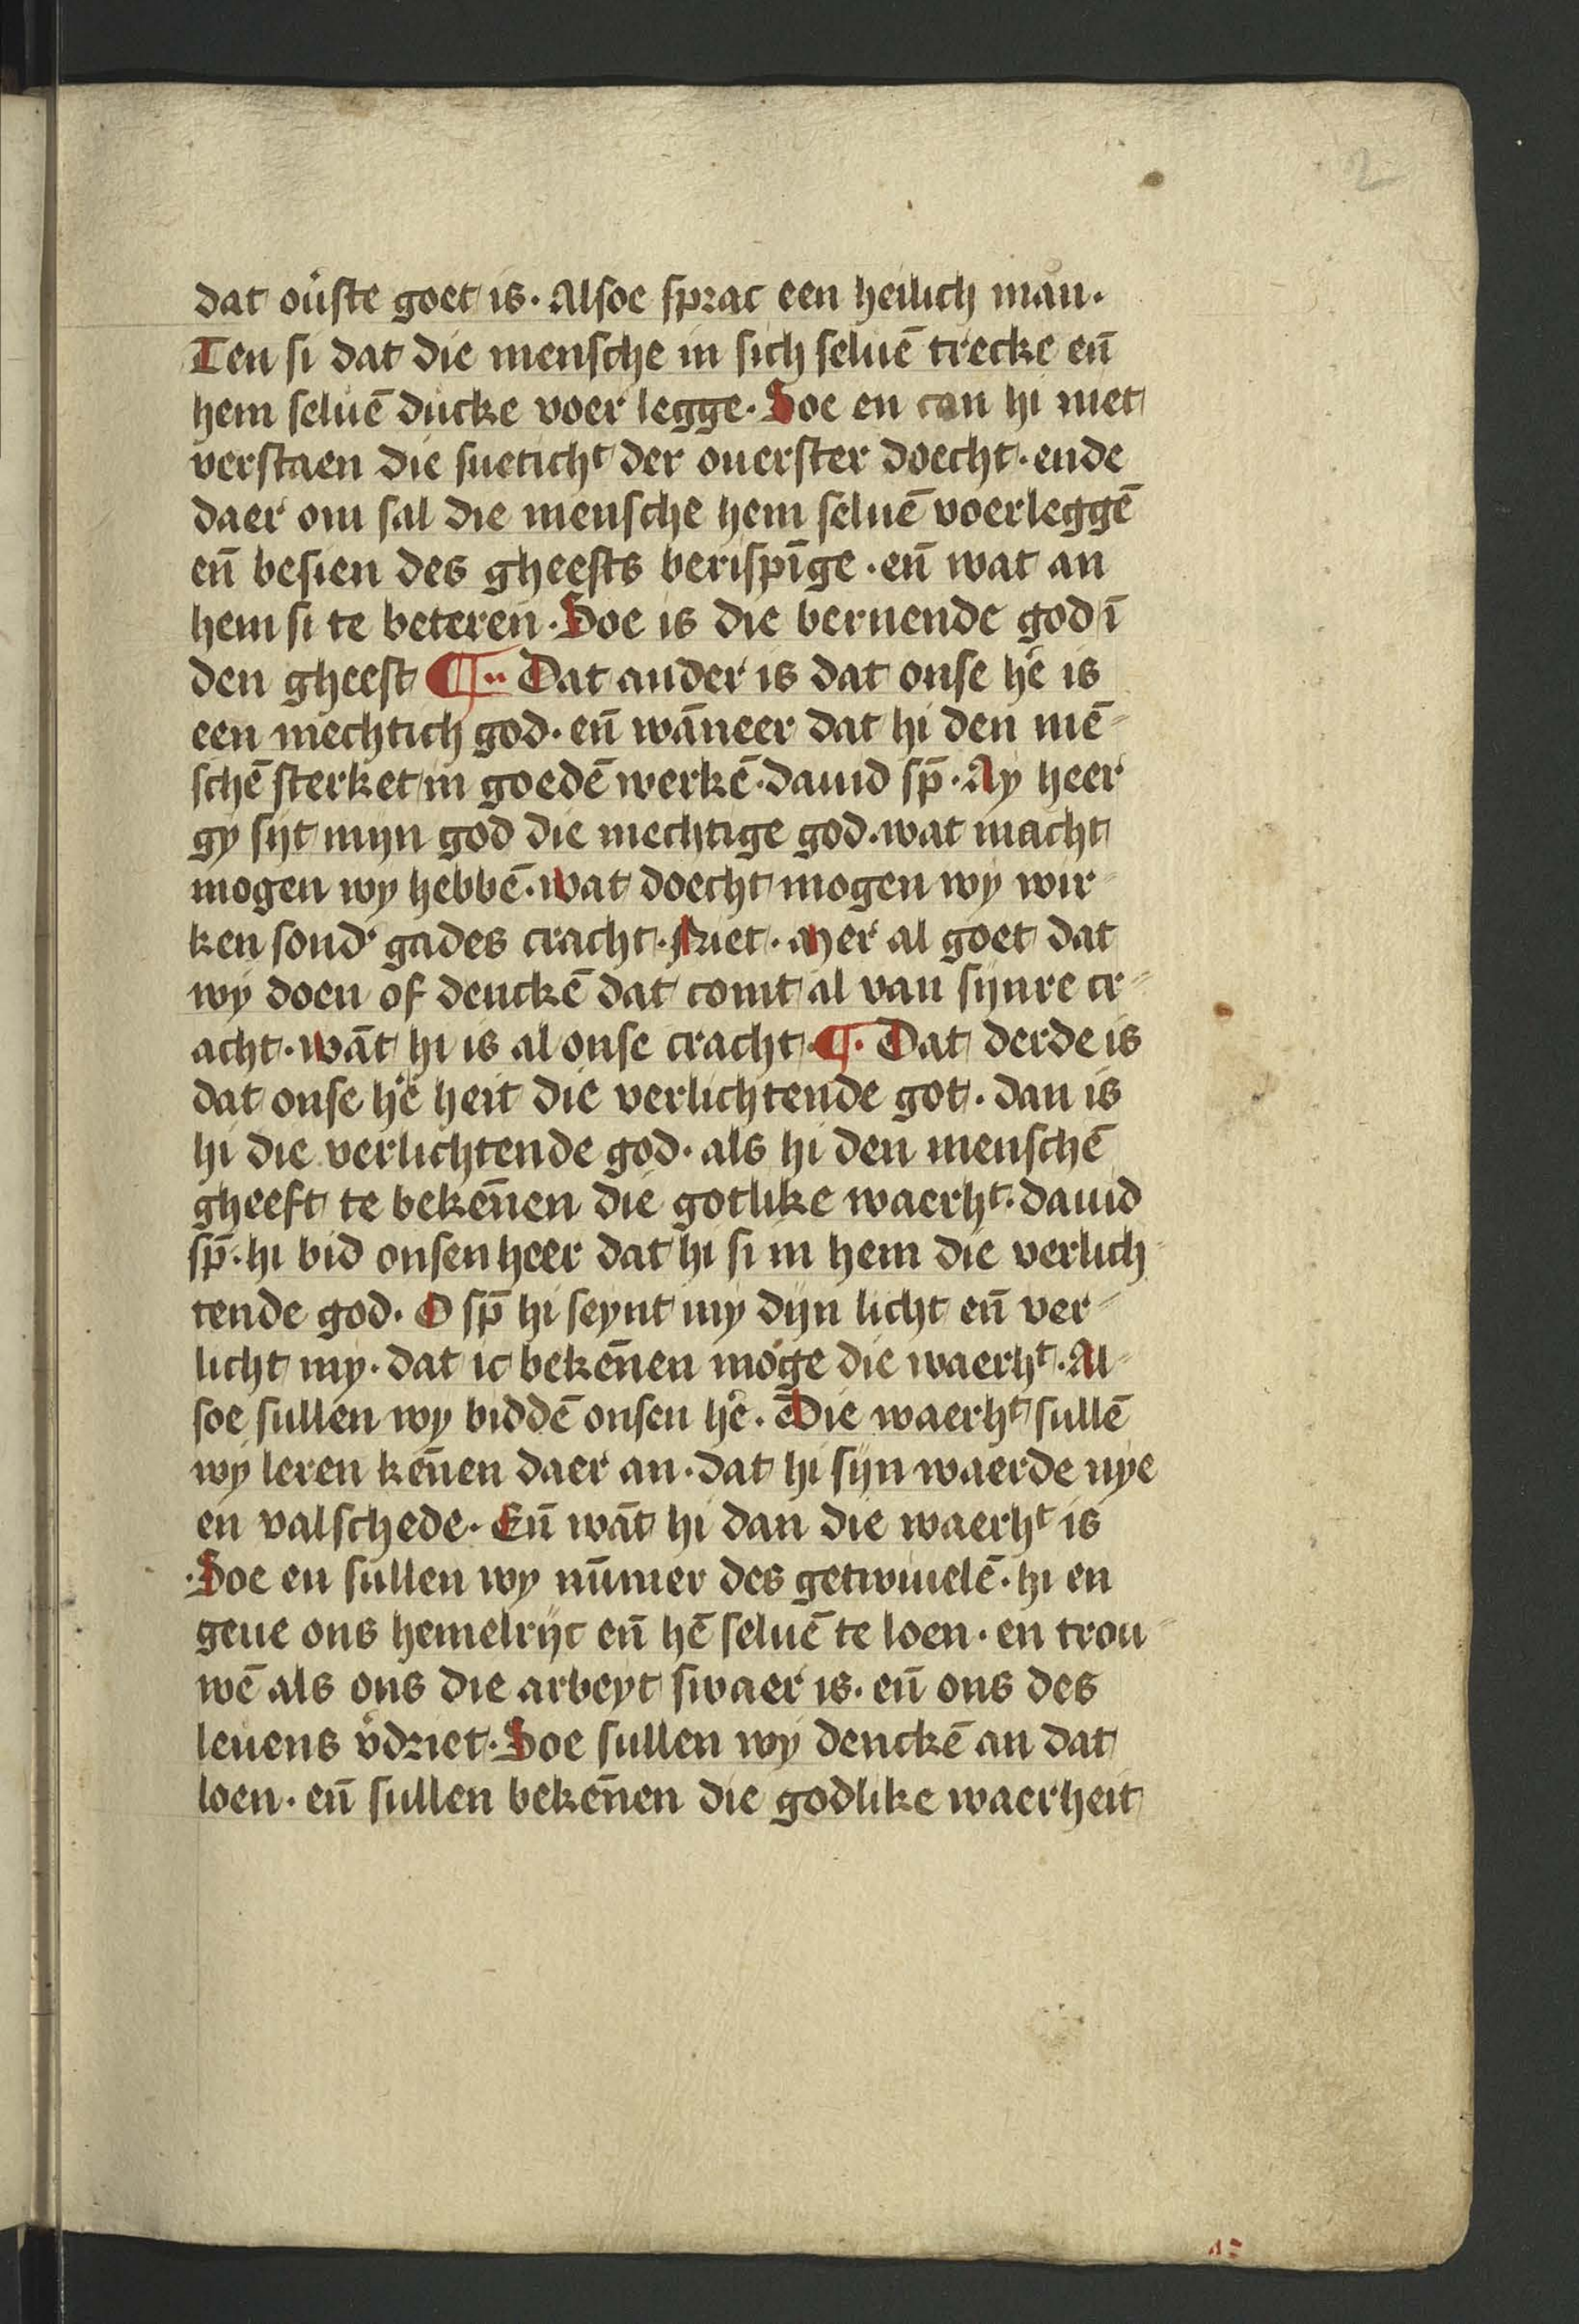 2
dat ou̇ste goet is. Alsoe sprac een heilich man.
Ten si dat die mensche in sich seluē trecke en̄
hem seluē ducke voer legge. Soe en can hi niet
verstaen die sueticht der ouerster doecht. ende
daer om sal die mensche hem seluē voerleggē
en̄ besien des gheests berispīge. en̄ wat an
hem si te beteren. Soe is die bernende god ī
den gheest ¶.. Dat ander is dat onse he̾ is
een mechtich god. en̄ wān̄eer dat hi den mē-
schē sterket in goedē werkē. dauid sp̄. Ay heer
gy sijt mijn god die mechtige god. wat macht
mogen wy hebbē. wat doecht mogen wy wir-
ken sond̾ gades cracht. Niet. mer al goet dat
wy doen of denckē dat comt al van sijnre cr-
acht. wāt hi is al onse cracht. ¶. Dat derde is
dat onse he̾ heit die verlichtende got. dan is
hi die verlichtende god. als hi den menschē
gheeft te beken̄en die gotlike waerht. dauid
sp̄. hi bid onsen heer dat hi si in hem die verlich-
tende god. O sp̄ hi seynt my dijn licht en̄ ver-
licht my. dat ic beken̄en moge die waerht. Al-
soe sullen wy biddē onsen he̾. Die waerht sullē
wy leren ken̄en daer an. dat hi sijn waerde nye
en valschede. En̄ wāt hi dan die waerht is
.Soe en sullen wy nūmer des getwiuelē. hi en
geue ons hemelrijc en̄ hē seluē te loen. en trou-
wē als ons die arbeyt swaer is. en̄ ons des
leuens v̾driet. Soe sullen wy denckē an dat
loen. en̄ sullen beken̄en die godlike waerheit